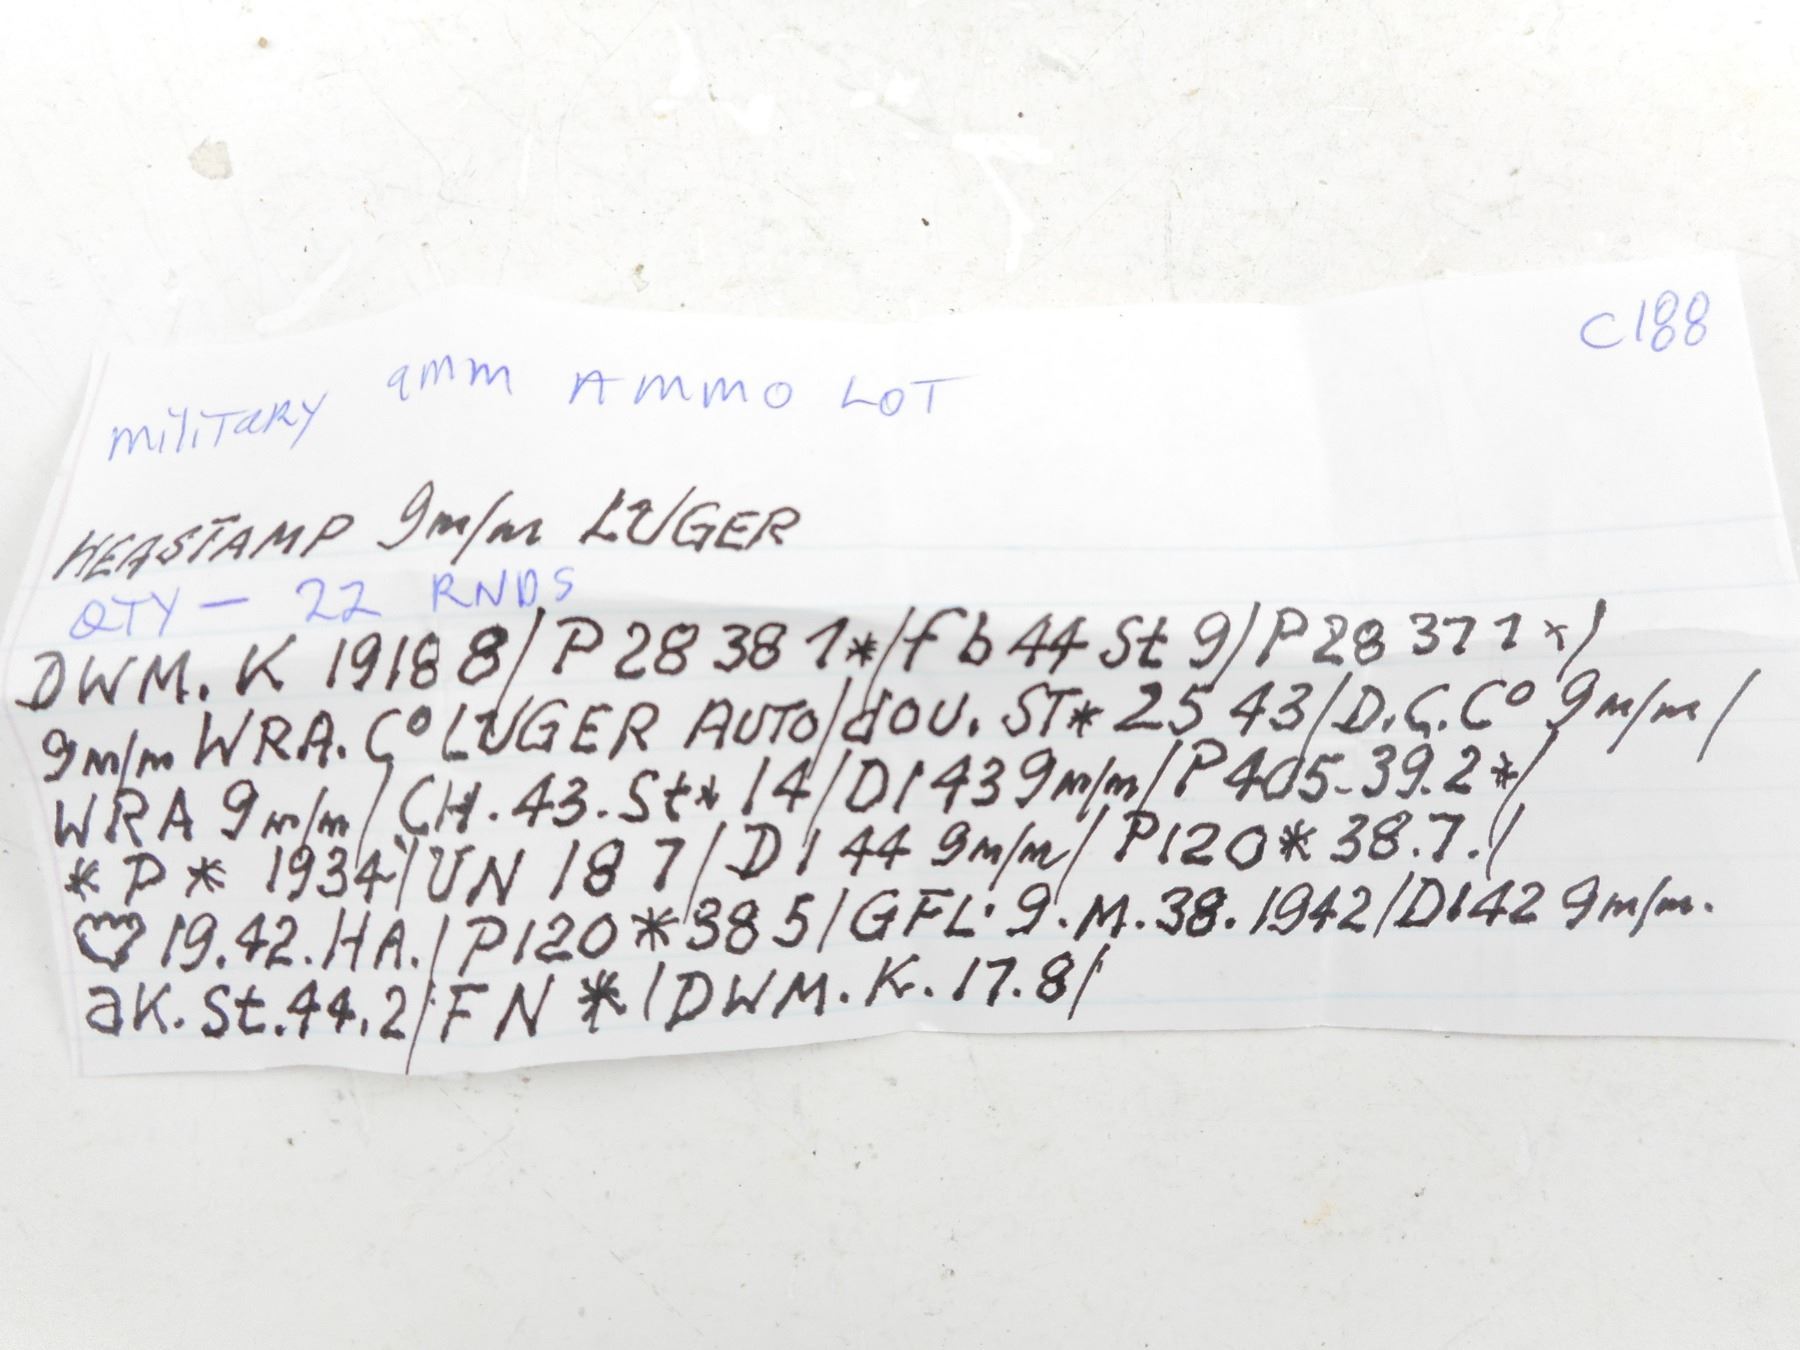 C188
military 9mm AMMO LOT
HEASTAMP 9m/m LUGER
QTY — 22 RNDS
DWM. K 1918 8/P 28 38 1*/fb 44 St 9/P 28 37 1 */
9m/m WRA. Cº LUGER AUTO/dou. ST* 25 43/D.C.Cº 9m/m/
WRA 9m/m/CH.43.St* 14/D1 43 9m/m/P405-39.2*/
*P* 1934/UN 18 7/D1 44 9m/m/P120*38.7./
19.42.HA./P120*38 5/GFL.9.M.38.1942/D142 9m/m.
ak.St.44.2/FN*/DWM.K.17.8/